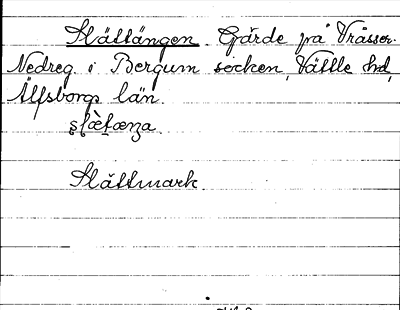 Slättängen. Gärde på Vråsser.
Nedreg. i Bergum socken, Vättle hd,
Älfsborgs län.
Slättmark.